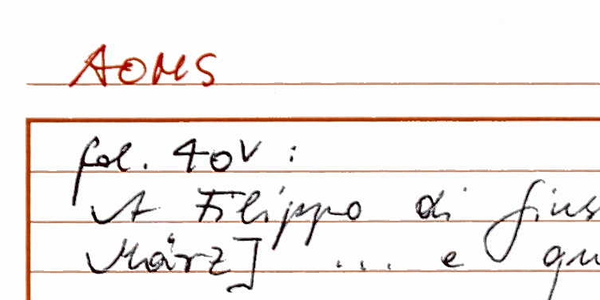 AOMS
fol. 40v:
A Filippo di Gius
März] ... e qu